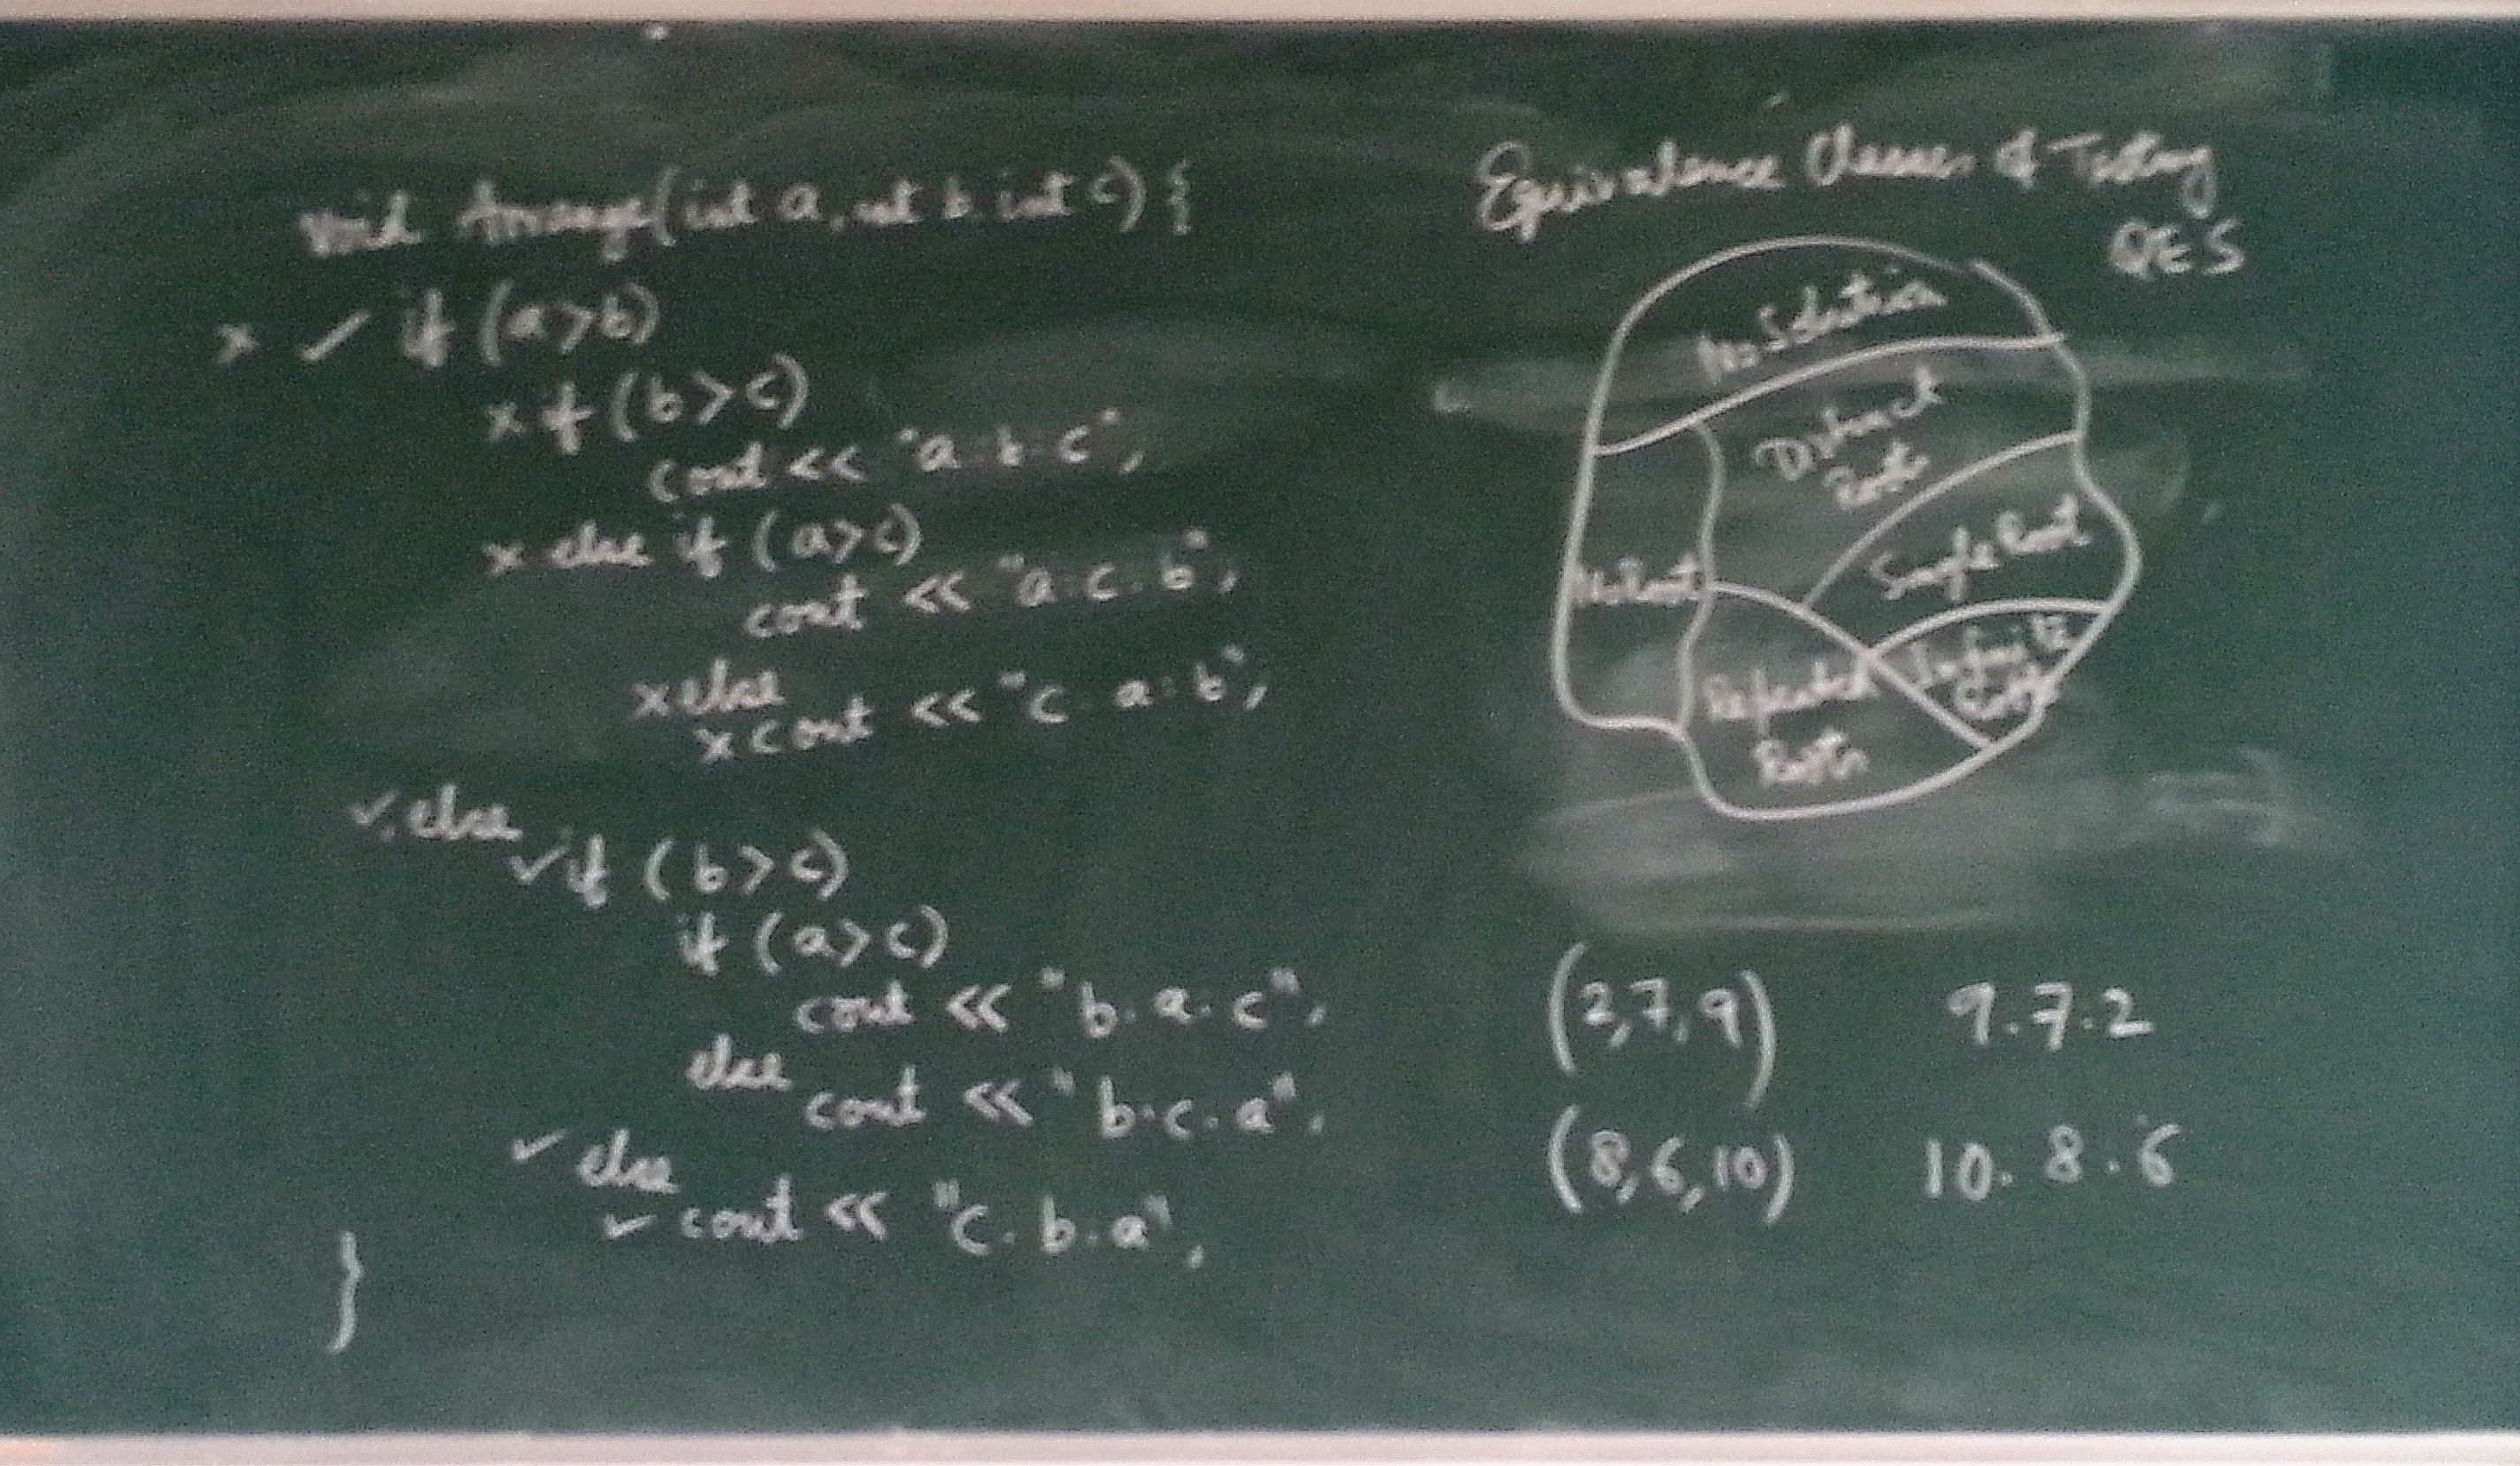 void Arrange(int a, int b, int c) {
x ✓ if (a>b)
x if (b>c)
cout << "a.b.c";
x else if (a>c)
cout << "a.c.b";
x else
x cout << "c.a.b";
✓ else
✓ if (b>c)
if (a>c)
cout << "b.a.c";
else
cout << "b.c.a";
✓ else
✓ cout << "c.b.a";
}
Equivalence Classes of Testing
QES
No Solution
Distinct
Roots
Single Root
No Root
Infinite
Repeated
Roots
(2,7,9) 9.7.2
(8,6,10) 10.8.6